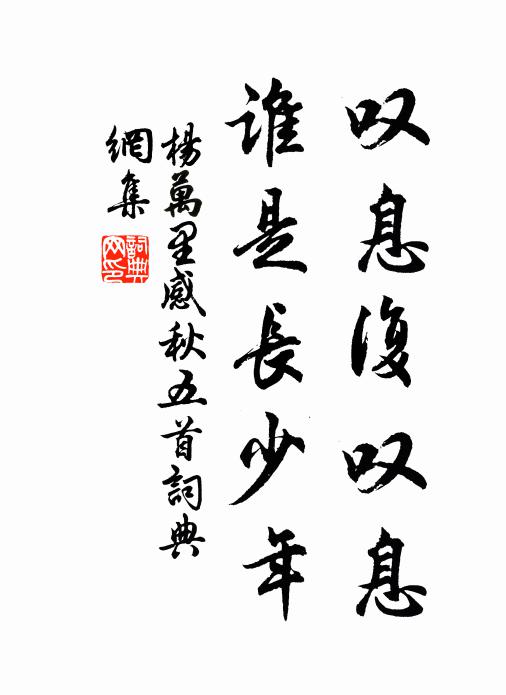 叹息復叹息
谁是長少年
楊萬里感秋五首詞典
網集
詞典
网印